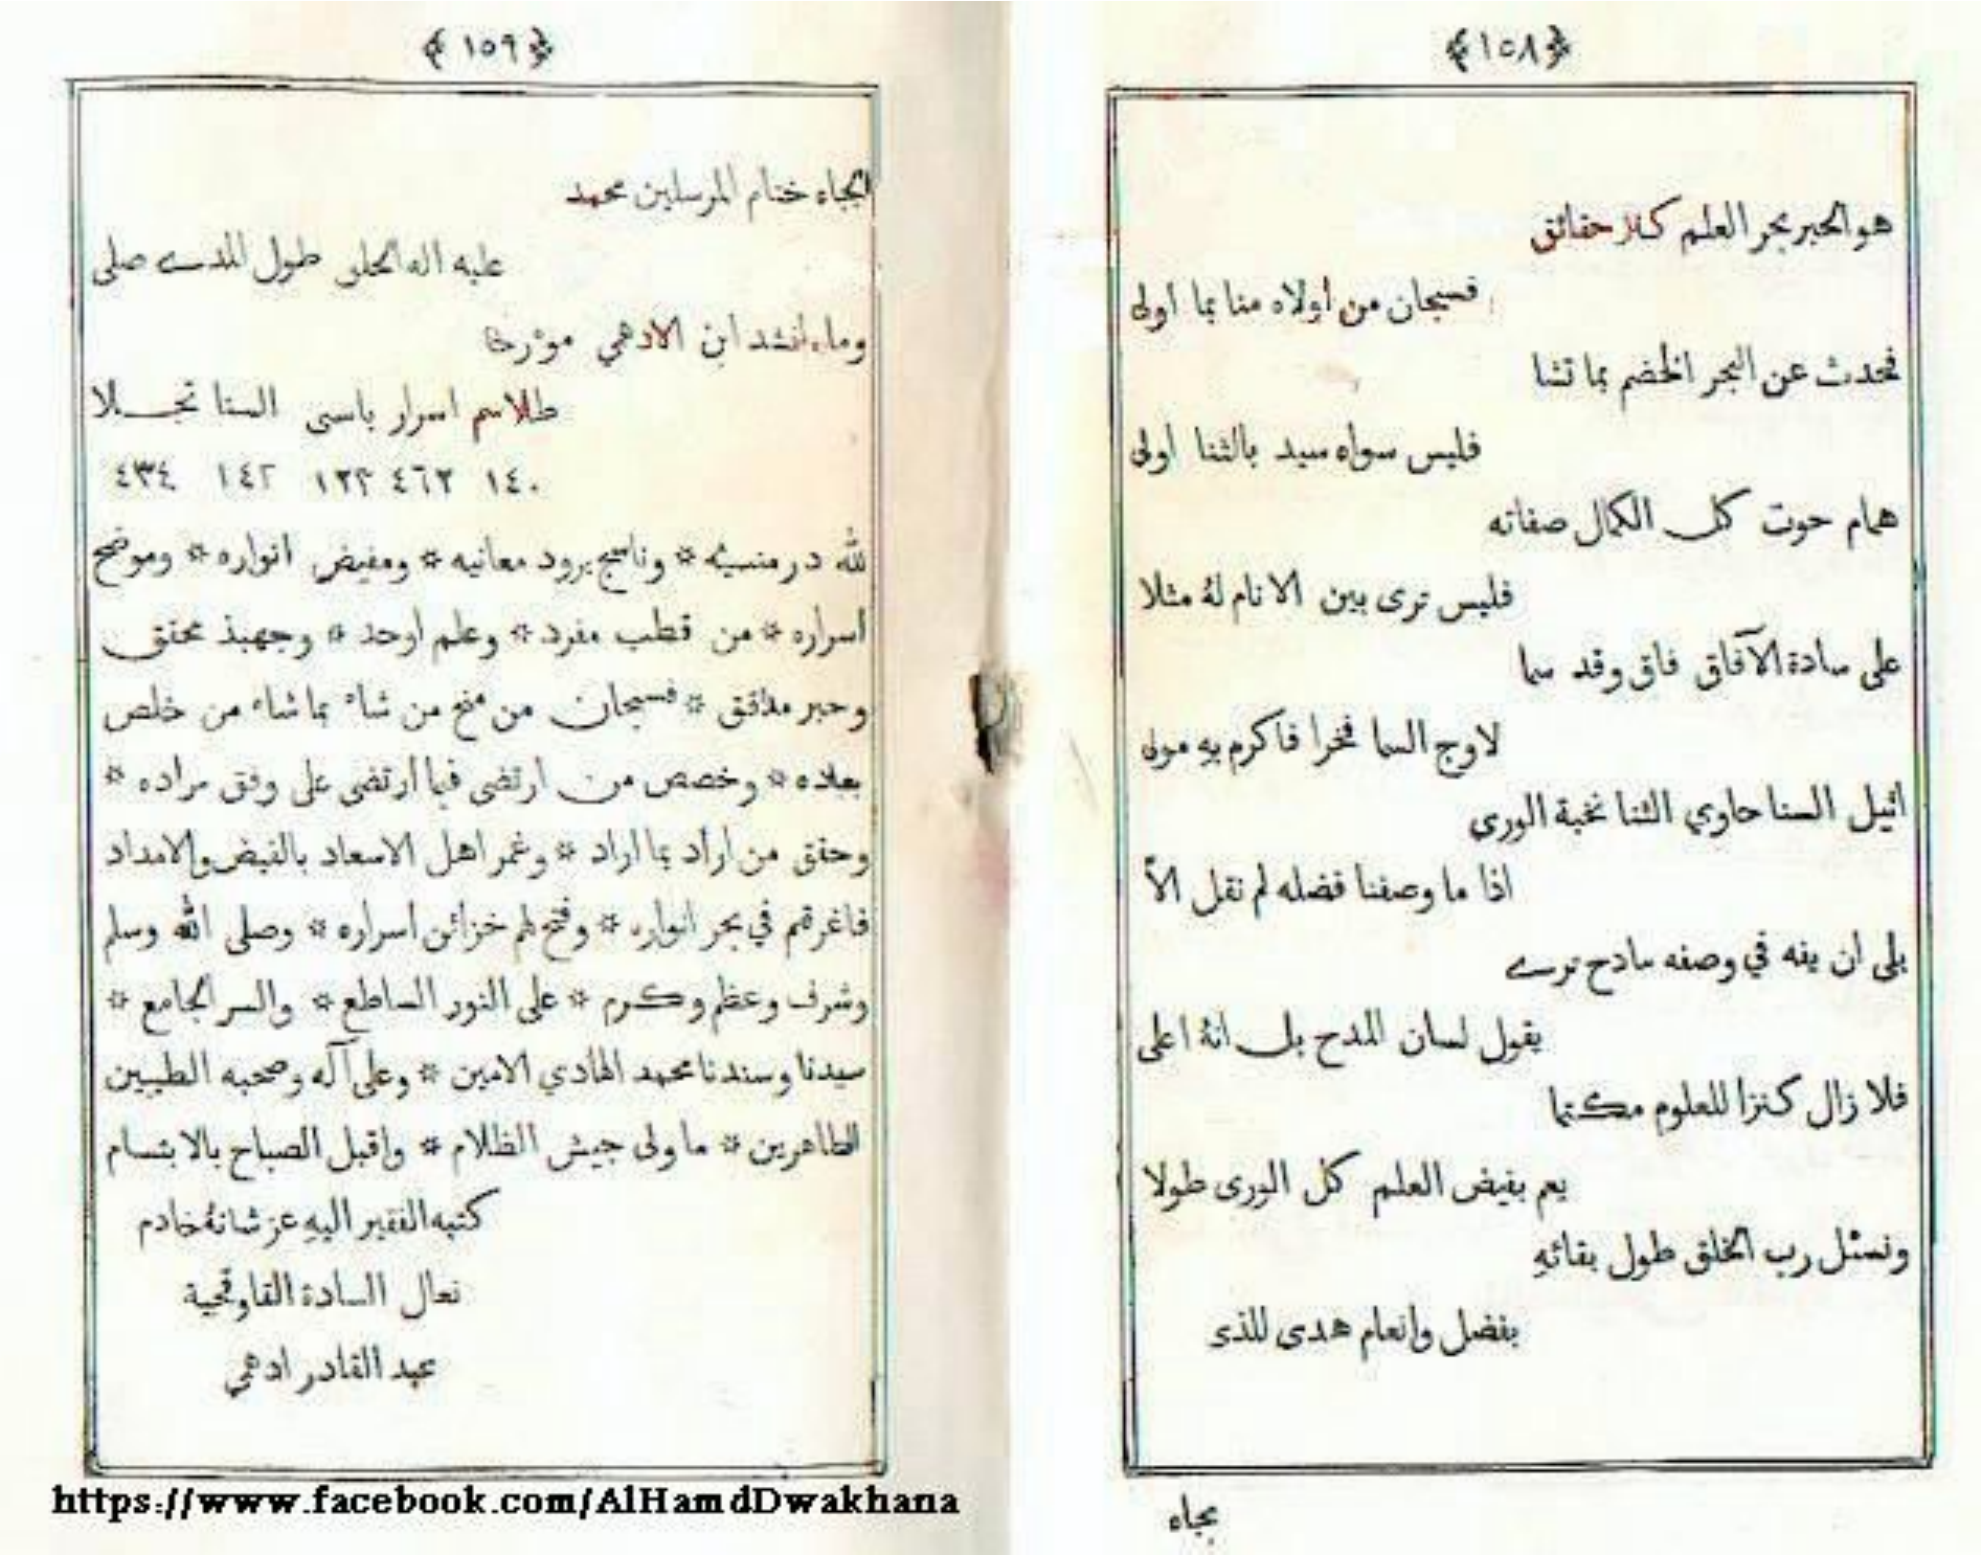 ﴿١٥٨﴾
هو الحبر بحر العلم كنز حقائق
فسبحان من اولاه منا بما اولى
فحدث عن البحر الخضم بما تشا
فليس سواه سيد بالثنا اولى
همام حوت كل الكمال صفاته
فليس ترى بين الانام لهُ مثلا
على سادة الآفاق فاق وقد سما
لاوج السما فخرا فاكرم بهِ مولى
اثيل السنا حاوي الثنا نخبة الورى
اذا ما وصفنا فضله لم نقل الاّ
بلى ان يفه في وصفه مادح ترى
يقول لسان المدح بل انهُ اعلى
فلا زال كنزا للعلوم مكتما
يعم بفيض العلم كل الورى طولا
ونسئل رب الخلق طول بقائهِ
بفضل وانعام هدى للذى
بجاه
﴿١٥٩﴾
بجاه ختام المرسلين محمد
عليه اله الخلق طول المدى صلى
وما انشد ابن الادهمي مؤرخا
طلاسم اسرار باسى السنا تجلا
١٤٠ ٤٦٢ ١٣٣ ١٤٢ ٤٣٤
لله در منشيه * وناسج برود معانيه * ومفيض انواره * وموضح
اسراره * من قطب مفرد * وعلم اوحد * وجهبذ محقق
وحبر مدقق * فسبحان من منح من شاء بما شاء من خلص
بعباده * وخصص من ارتضى فيما ارتضى على وفق مراده *
وحقق من اراد بما اراد * وغمر اهل الاسعاد بالفيض والامداد
فاغرقهم في بحر انواره * وفتح لهم خزائن اسراره * وصلى الله وسلم
وشرف وعظم وكرم * على النور الساطع * والسر الجامع *
سيدنا وسندنا محمد الهادي الامين * وعلى آله وصحبه الطيبين
الطاهرين * ما ولى جيش الظلام * واقبل الصباح بالابتسام
كتبه الفقير اليهِ عز شانهُ خادم
نعال السادة القاوقجية
عبد القادر ادهمي
https://www.facebook.com/AlHamdDwakhana